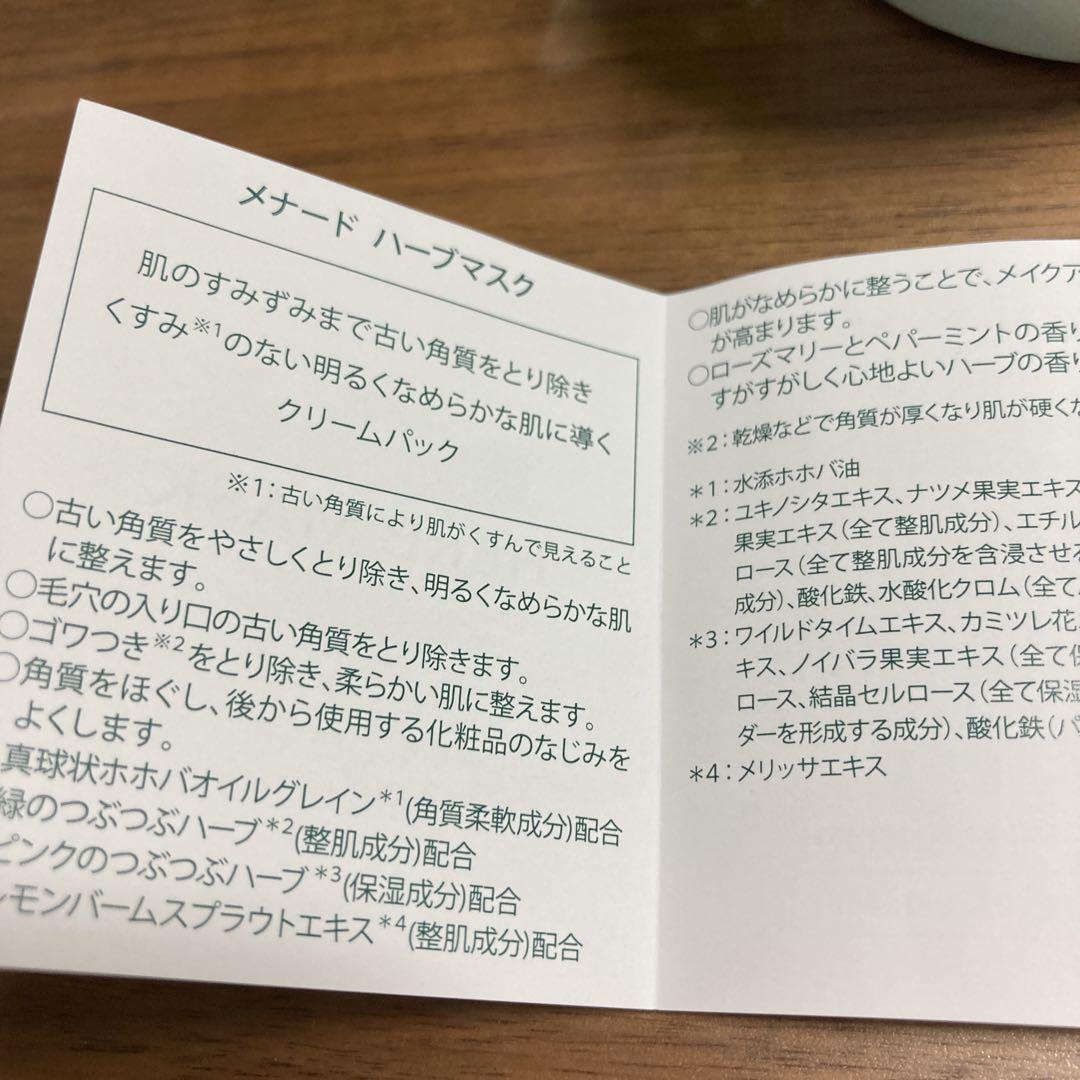 メナード ハーブマスク
肌のすみずみまで古い角質をとり除き
くすみ※1のない明るくなめらかな肌に導く
クリームパック
※1：古い角質により肌がくすんで見えること
○古い角質をやさしくとり除き、明るくなめらかな肌
に整えます。
○毛穴の入り口の古い角質をとり除きます。
○ゴワつき※2をとり除き、柔らかい肌に整えます。
○角質をほぐし、後から使用する化粧品のなじみを
よくします。
真球状ホホバオイルグレイン*1(角質柔軟成分)配合
緑のつぶつぶハーブ*2(整肌成分)配合
ピンクのつぶつぶハーブ*3(保湿成分)配合
レモンバームスプラウトエキス*4(整肌成分)配合
○肌がなめらかに整うことで、メイクア
が高まります。
○ローズマリーとペパーミントの香り
すがすがしく心地よいハーブの香り
※2：乾燥などで角質が厚くなり肌が硬くな
*1：水添ホホバ油
*2：ユキノシタエキス、ナツメ果実エキス
果実エキス（全て整肌成分）、エチル
ロース（全て整肌成分を含浸させ
成分）、酸化鉄、水酸化クロム（全て
*3：ワイルドタイムエキス、カミツレ花
キス、ノイバラ果実エキス（全て保
ロース、結晶セルロース（全て保湿
ダーを形成する成分）、酸化鉄（パ
*4：メリッサエキス